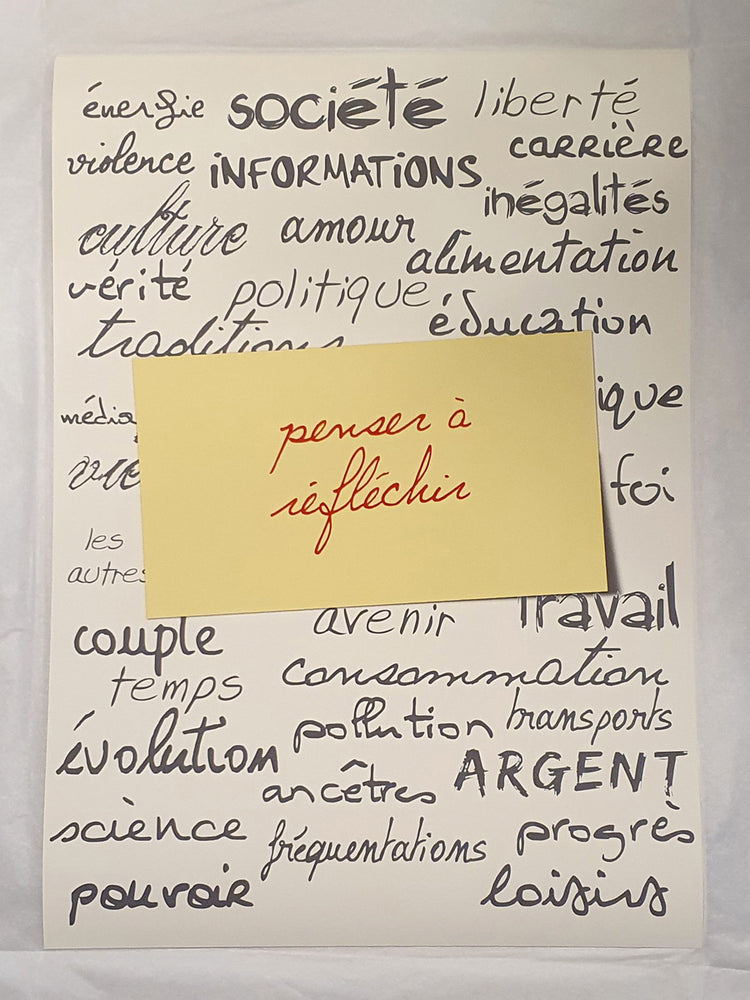 énergie société liberté
violence iNFORMATiONS carrière
culture amour inégalités
alimentation
vérité politique
traditions éducation
média ique
vie foi
penser à
réfléchir
les
autres
couple avenir Travail
temps consommation
évolution pollution transports
ancêtres ARGENT
science fréquentations progrès
pouvoir loisirs